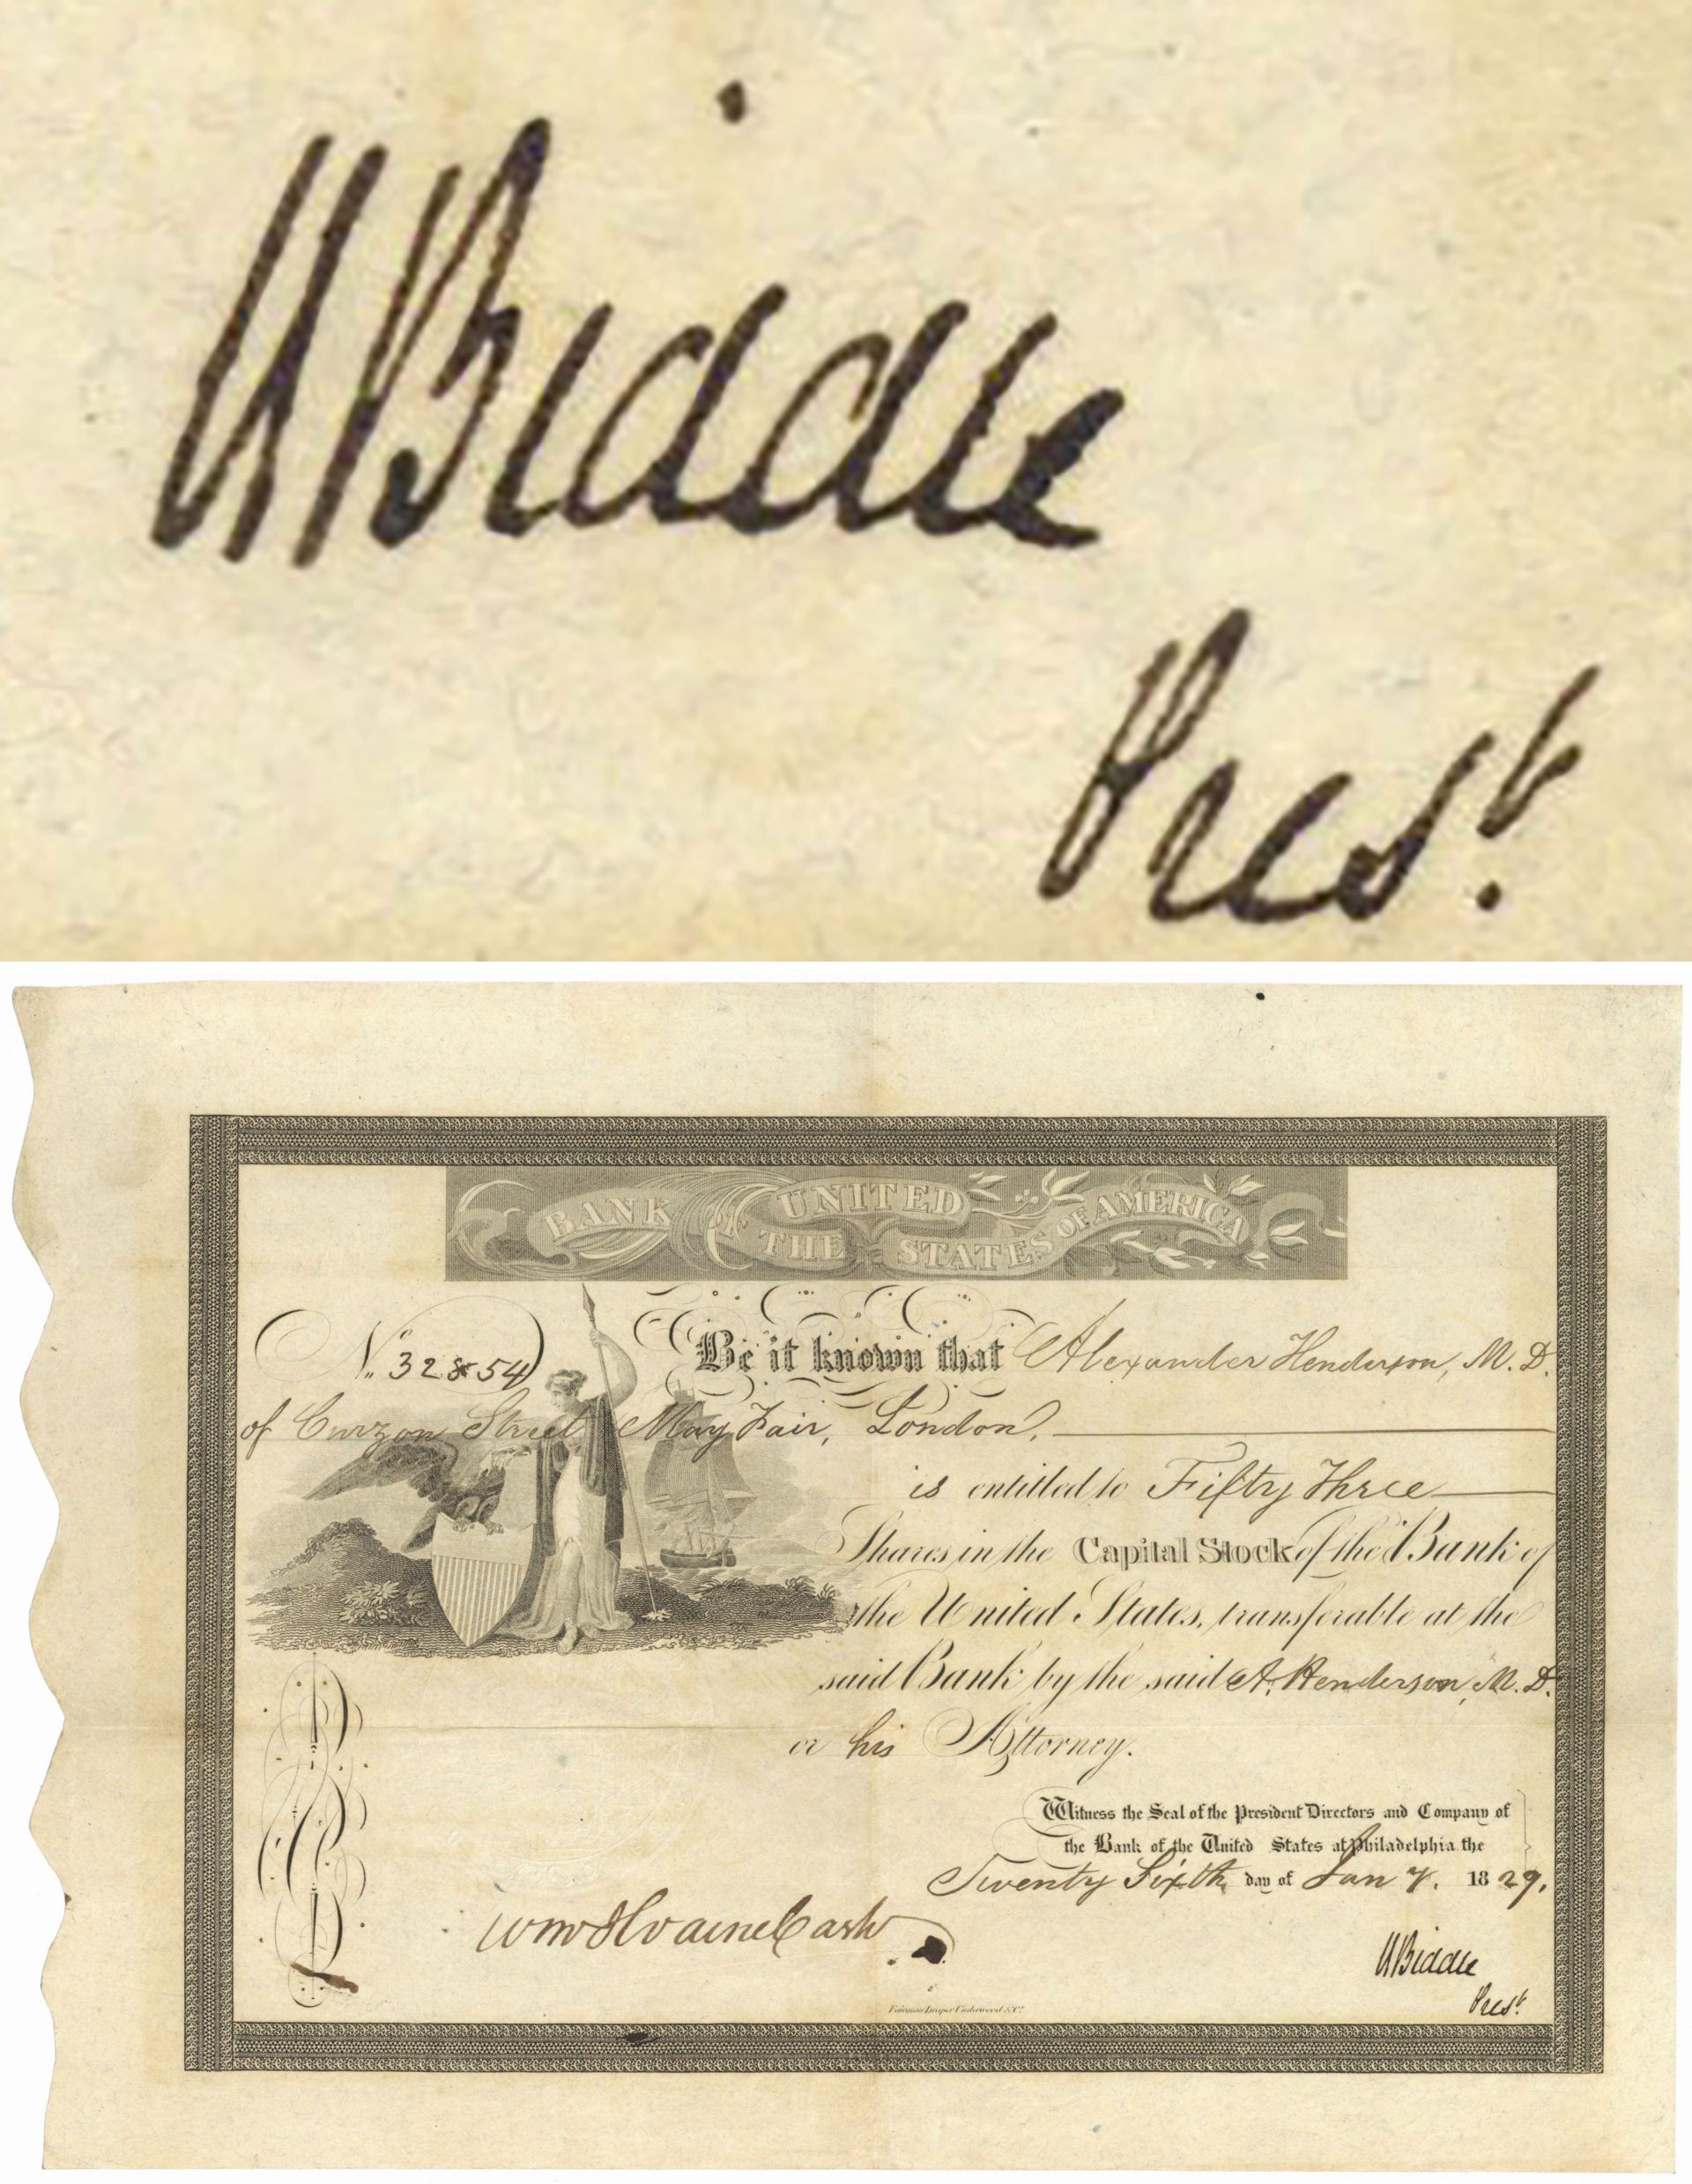 N Biddle
Prest.
BANK OF THE UNITED STATES OF AMERICA
No. 32854 Be it known that Alexander Henderson, M. D.
of Curzon Street May Fair, London,
is entitled to Fifty Three
Shares in the Capital Stock of the Bank of
the United States, transferable at the
said Bank by the said A. Henderson, M. D.
or his Attorney.
Witness the Seal of the President Directors and Company of
the Bank of the United States at Philadelphia the
Twenty Sixth day of Jany. 1829.
Wm McIlvaine Cashr
N Biddle
Prest.
Fairman Draper Underwood & Co.